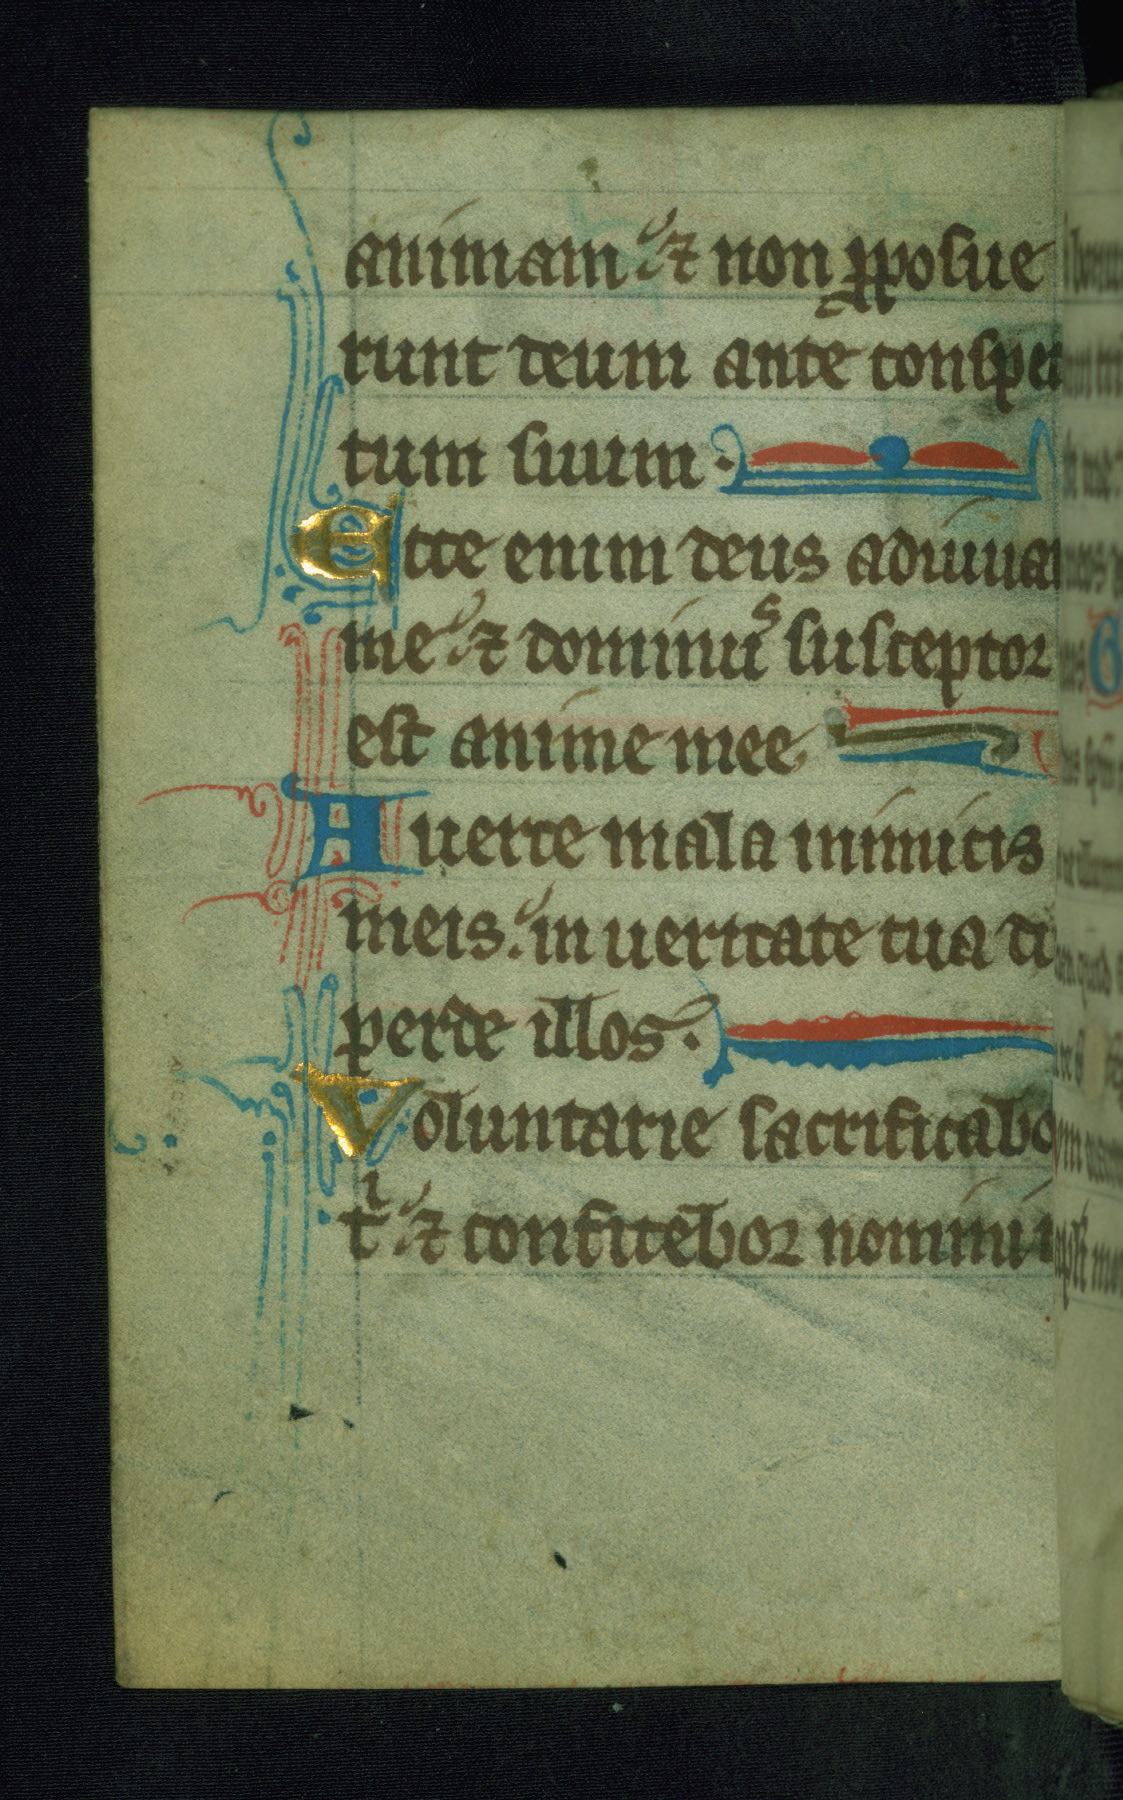 animam et non ꝓposue
runt deum ante conspec
tum suum.
Ecce enim deus adiuuat
me et dominus susceptor
est anime mee.
Auerte mala inimicis
meis. in ueritate tua di
perde illos.
Voluntarie sacrificabo
tͥ et confitebor nomini